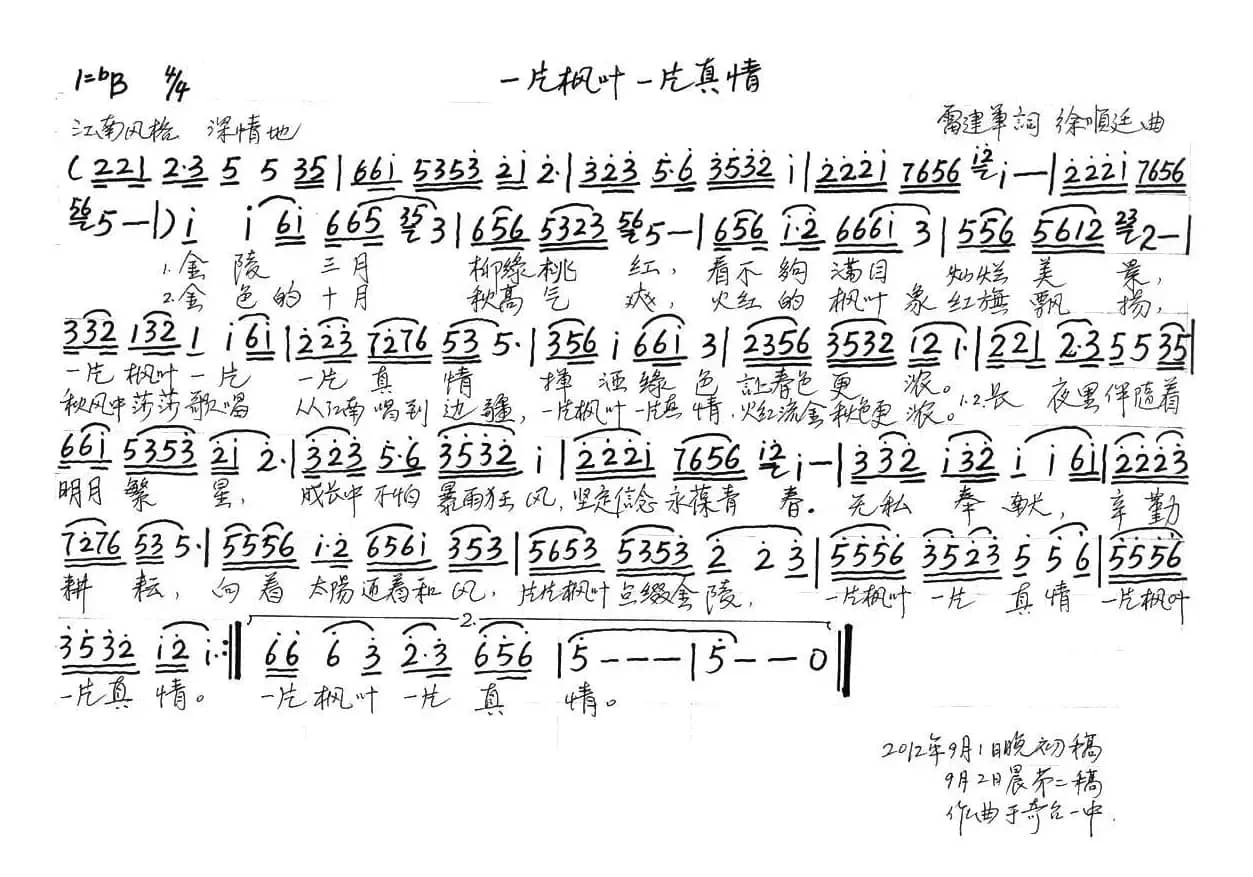 一片枫叶一片真情
1=♭B 4/4
江南风格 深情地
雷建军詞 徐順廷曲
( 221 2·3 5 5 35 | 661̇ 5353̇ 2̇1̇ 2̇· | 3̇2̇3̇ 5̇·6̇ 3̇5̇3̇2̇ 1̇ | 2̇2̇2̇1̇ 7656 1̇2̇ 1̇ — | 2̇2̇2̇1̇ 7656
56 5 — | ) 1̇ 1̇ 61̇ 665 35 3 | 656 5323 56 5 — | 656 1̇·2̇ 6661̇ 3 | 556 5612 23 2 — |
1.金 陵 三月 柳綠桃 红，看不夠 满目 灿烂美 景，
2.金 色的十月 秋高气 爽，火红的 枫叶象红旗飘 扬，
332 132 1 1̇ 61̇ | 2̇2̇3̇ 72̇76 53 5· | 356 1̇ 661̇ 3 | 2356 3532 12 1· | 221 2·3 5 5 35 |
一片 枫叶一片 一片 真 情 揮洒綠 色 让春色更 浓。
秋风中莎莎歌唱 从江南唱到 边疆，一片枫叶一片真 情，火红流金秋色更浓。1.2.长 夜里伴随着
661̇ 5353̇ 2̇1̇ 2̇· | 3̇2̇3̇ 5̇·6̇ 3̇5̇3̇2̇ 1̇ | 2̇2̇2̇1̇ 7656 1̇2̇ 1̇ — | 3̇3̇2̇ 1̇3̇2̇ 1̇ 1̇ 61̇ | 2̇2̇2̇3̇
明月 繁 星， 成长中 不怕 暴雨狂 风，坚定信念 永葆青 春。无私 奉 献， 辛勤
72̇76 53 5· | 5556 1̇·2̇ 6561̇ 353 | 5653 5353̇ 2̇ 2̇ 3̇ | 5̇5̇5̇6̇ 3̇5̇2̇3̇ 5̇ 5̇ 6̇ | 5̇5̇5̇6̇
耕 耘，向 着 太陽迎着和 风，片片枫叶点缀金 陵， 一片枫叶 一片 真 情 一片枫叶
3̇5̇3̇2̇ 1̇2̇ 1̇· :‖ 2. 6̇6̇ 6̇ 3̇ 2̇·3̇ 6̇5̇6̇ | 5̇ — — — | 5̇ — — 0 ‖
一片真 情。 一片 枫叶 一片 真 情。
2012年9月1日晚初稿
9月2日晨第二稿
作曲于奇台一中.